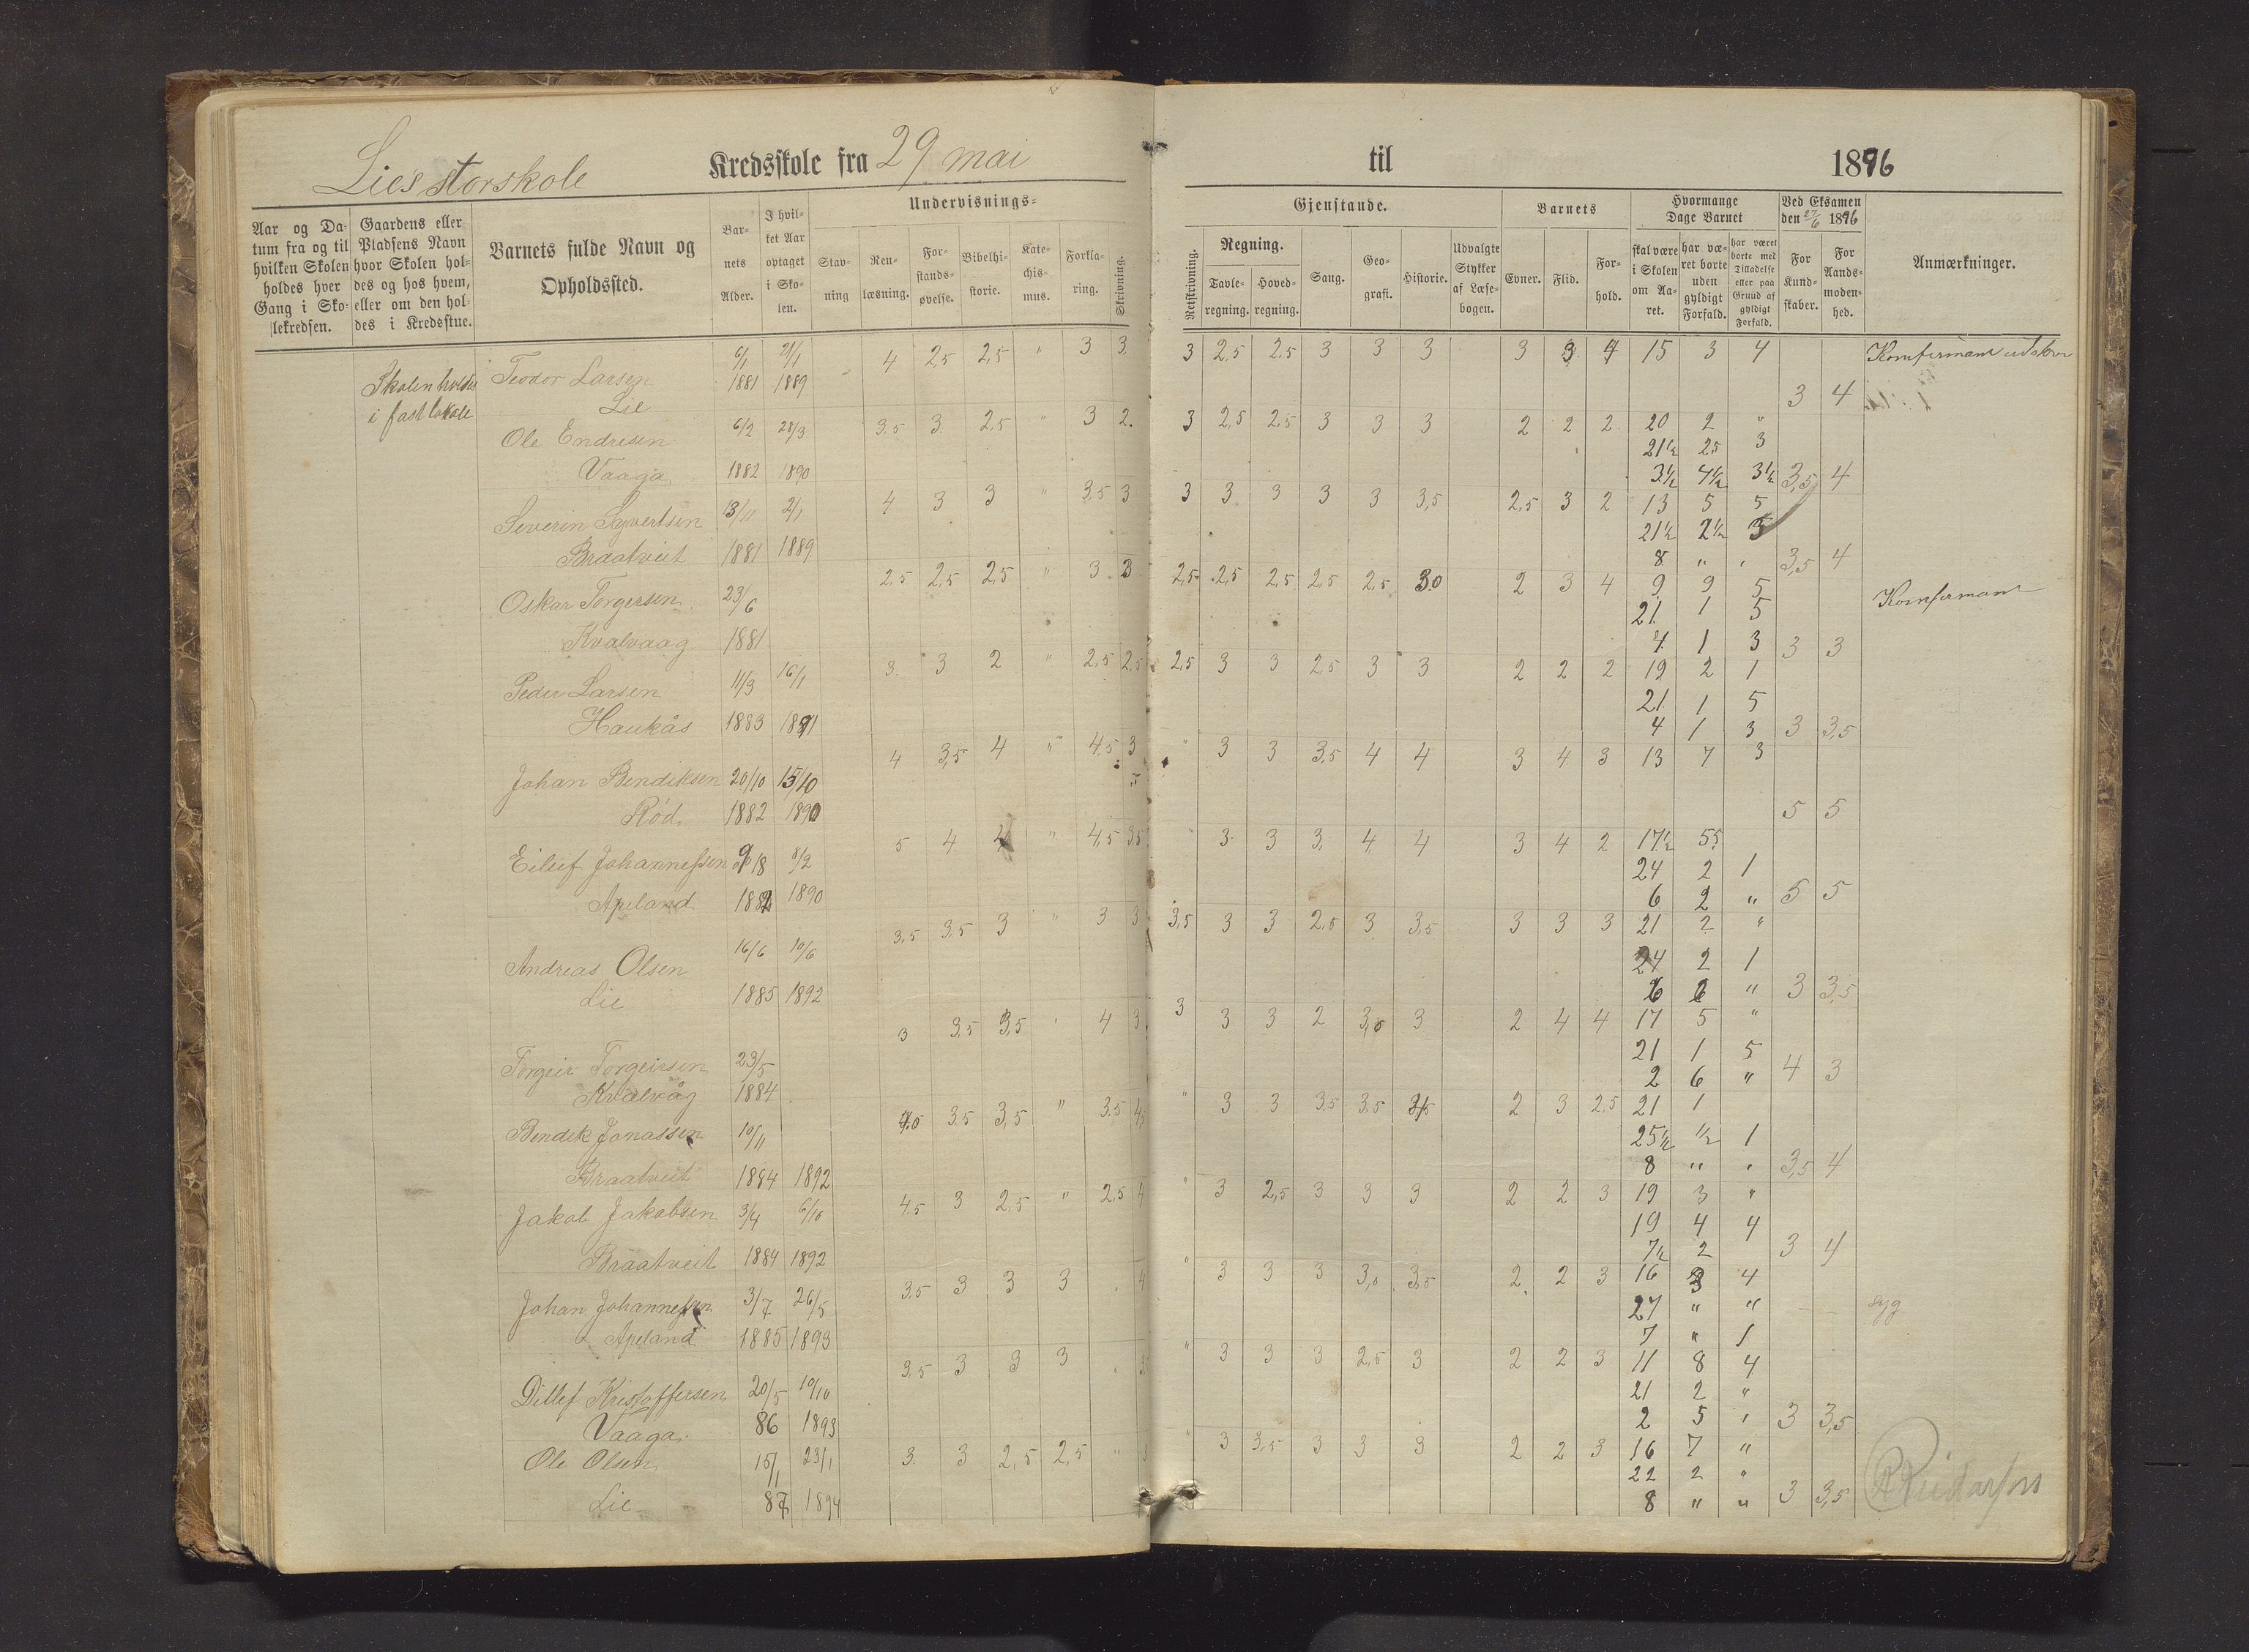 Lies storskole Kredsskole fra 29 mai til 1896
Aar og Datum fra og til hvilken Skolen holdes hver Gang i Skolekredsen.
Gaardens eller Pladsens Navn hvor Skolen holdes og hos hvem, eller om den holdes i Kredsstue.
Barnets fulde Navn og Opholdssted.
Barnets Alder.
I hvilket Aar optaget i Skolen.
Undervisnings=
Stavning
Renlæsning.
Forstandsøvelse.
Bibelhistorie.
Katechismus.
Forklaring.
Skrivning.
Gjenstande.
Retskrivning.
Regning.
Tavleregning.
Hovedregning.
Sang.
Geografi.
Historie.
Udvalgte Stykker af Læsebogen.
Barnets
Evner.
Flid.
Forhold.
Hvormange Dage Barnet
skal være i Skolen om Aaret.
har været borte uden gyldigt Forfald.
har været borte med Tilladelse eller paa Grund af gyldigt Forfald.
Ved Eksamen den 27/6 1896
For Kundskaber.
For Aandsmodenhed.
Anmærkninger.
Skolen holdes
i fast lokale
Teodor Larsen 6/1 21/1 4 2,5 2,5 " 3 3 3 2,5 2,5 3 3 3 3 3 4 15 3 4 Komfirmant
Lie 1881 1889 3 4
Ole Endresen 6/2 28/3 3,5 3 2,5 " 3 2. 3 2,5 2,5 3 3 3 2 2 2 20 2 "
21½ 2,5 3
Vaaga 1882 1890 3½ 4½ 3½ 3,5 4
Severin Syvertsen 13/11 2/1 4 3 3 " 3,5 3 3 3 3 3 3 3,5 2,5 3 2 13 5 5
21½ 2½ 5
Braatveit 1881 1889 8 " " 3,5 4
Oskar Torgersen 23/6 2,5 2,5 2,5 " 3 3 2,5 2,5 2,5 2,5 2,5 30 2 3 4 9 9 5 Komfirmant
21 1 5
Kvalvaag 1881 4 1 3 3 3
Peder Larsen 11/3 16/1 3 3 2 " 2,5 2,5 2,5 3 3 2,5 3 3 2 2 2 19 2 1
21 1 5
Haukås 1883 1891 4 1 3 3 3,5
Johan Bendiksen 20/10 15/10 4 3,5 4 " 4,5 3,5 " 3 3 3,5 4 4 3 4 3 13 7 3
Röd 1882 1890 5 5
Eilief Johannessen 9/8 8/2 5 4 4 " 4,5 3,5 " 3 3 3 4 4 3 4 2 17½ 5,5
24 2 1
Apeland 1882 1890 6 2 " 5 5
Andreas Olsen 16/6 10/6 3,5 3,5 3 " 3 3 3,5 3 3 2,5 3 3,5 3 3 3 21 2 "
24 2 1
Lie 1885 1892 6 2 " 3 3,5
Torgeir Torgeirsen 23/5 3 3,5 3,5 " 4 3 3 3 3 2 3,0 3 2 4 4 17 5 "
21 1 5
Kvalvåg 1884 2 6 " 4 3
Bendik Jonassen 10/11 4,0 3,5 3,5 " 3,5 4,5 " 3 3 3,5 3,5 3,5 2 3 2,5 21 1
25½ ½ 1
Braatveit 1884 1892 8 " " 3,5 4
Jakob Jakobsen 3/4 6/10 4,5 3 2,5 " 2,5 4 " 3 2,5 3 3 3 2 2 3 19 3 "
19 4 4
Braatveit 1884 1892 7½ 2 3 4
Johan Johannessen 3/7 26/5 3,5 3 3 3 4 " 3 3 3 3,0 3,5 2 2 3 16 3 4
27 " " – – syg
Apeland 1885 1893 7 " 1
Ditlef Kristoffersen 20/5 10/10 3,5 3 3 3 3 " 3 3 3 2,5 3 2 2 3 11 8 4
21 2 "
Vaaga 86 1893 2 5 " 3 3,5
Ole Olsen 15/1 23/1 3 3 2,5 2,5 " 3 " 3 3,5 3 3 3 2 2 3 16 7 "
22 2 "
Lie 87 1894 8 " " 3 3,5